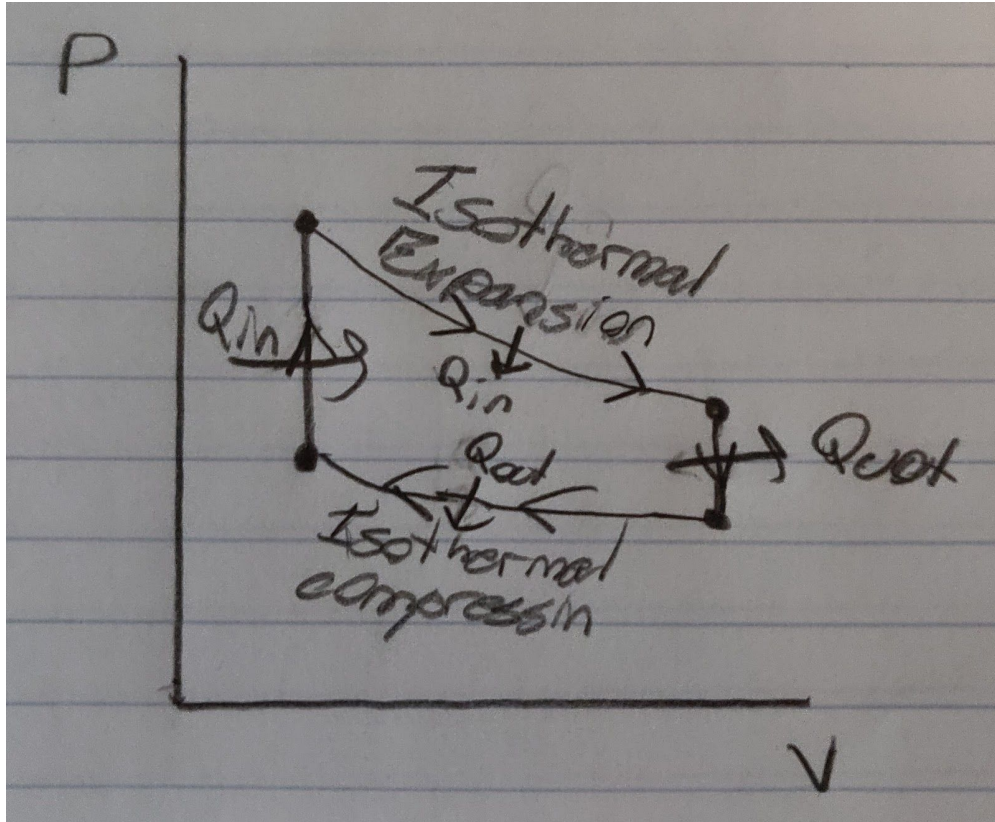 P
Isothermal
Expansion
Qin
Qin
Qout
Qout
Isothermal
compressin
V